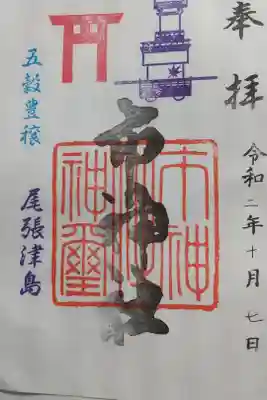 奉拝
令和二年十月七日
市神社
市神社神璽
五穀豊穣
尾張津島